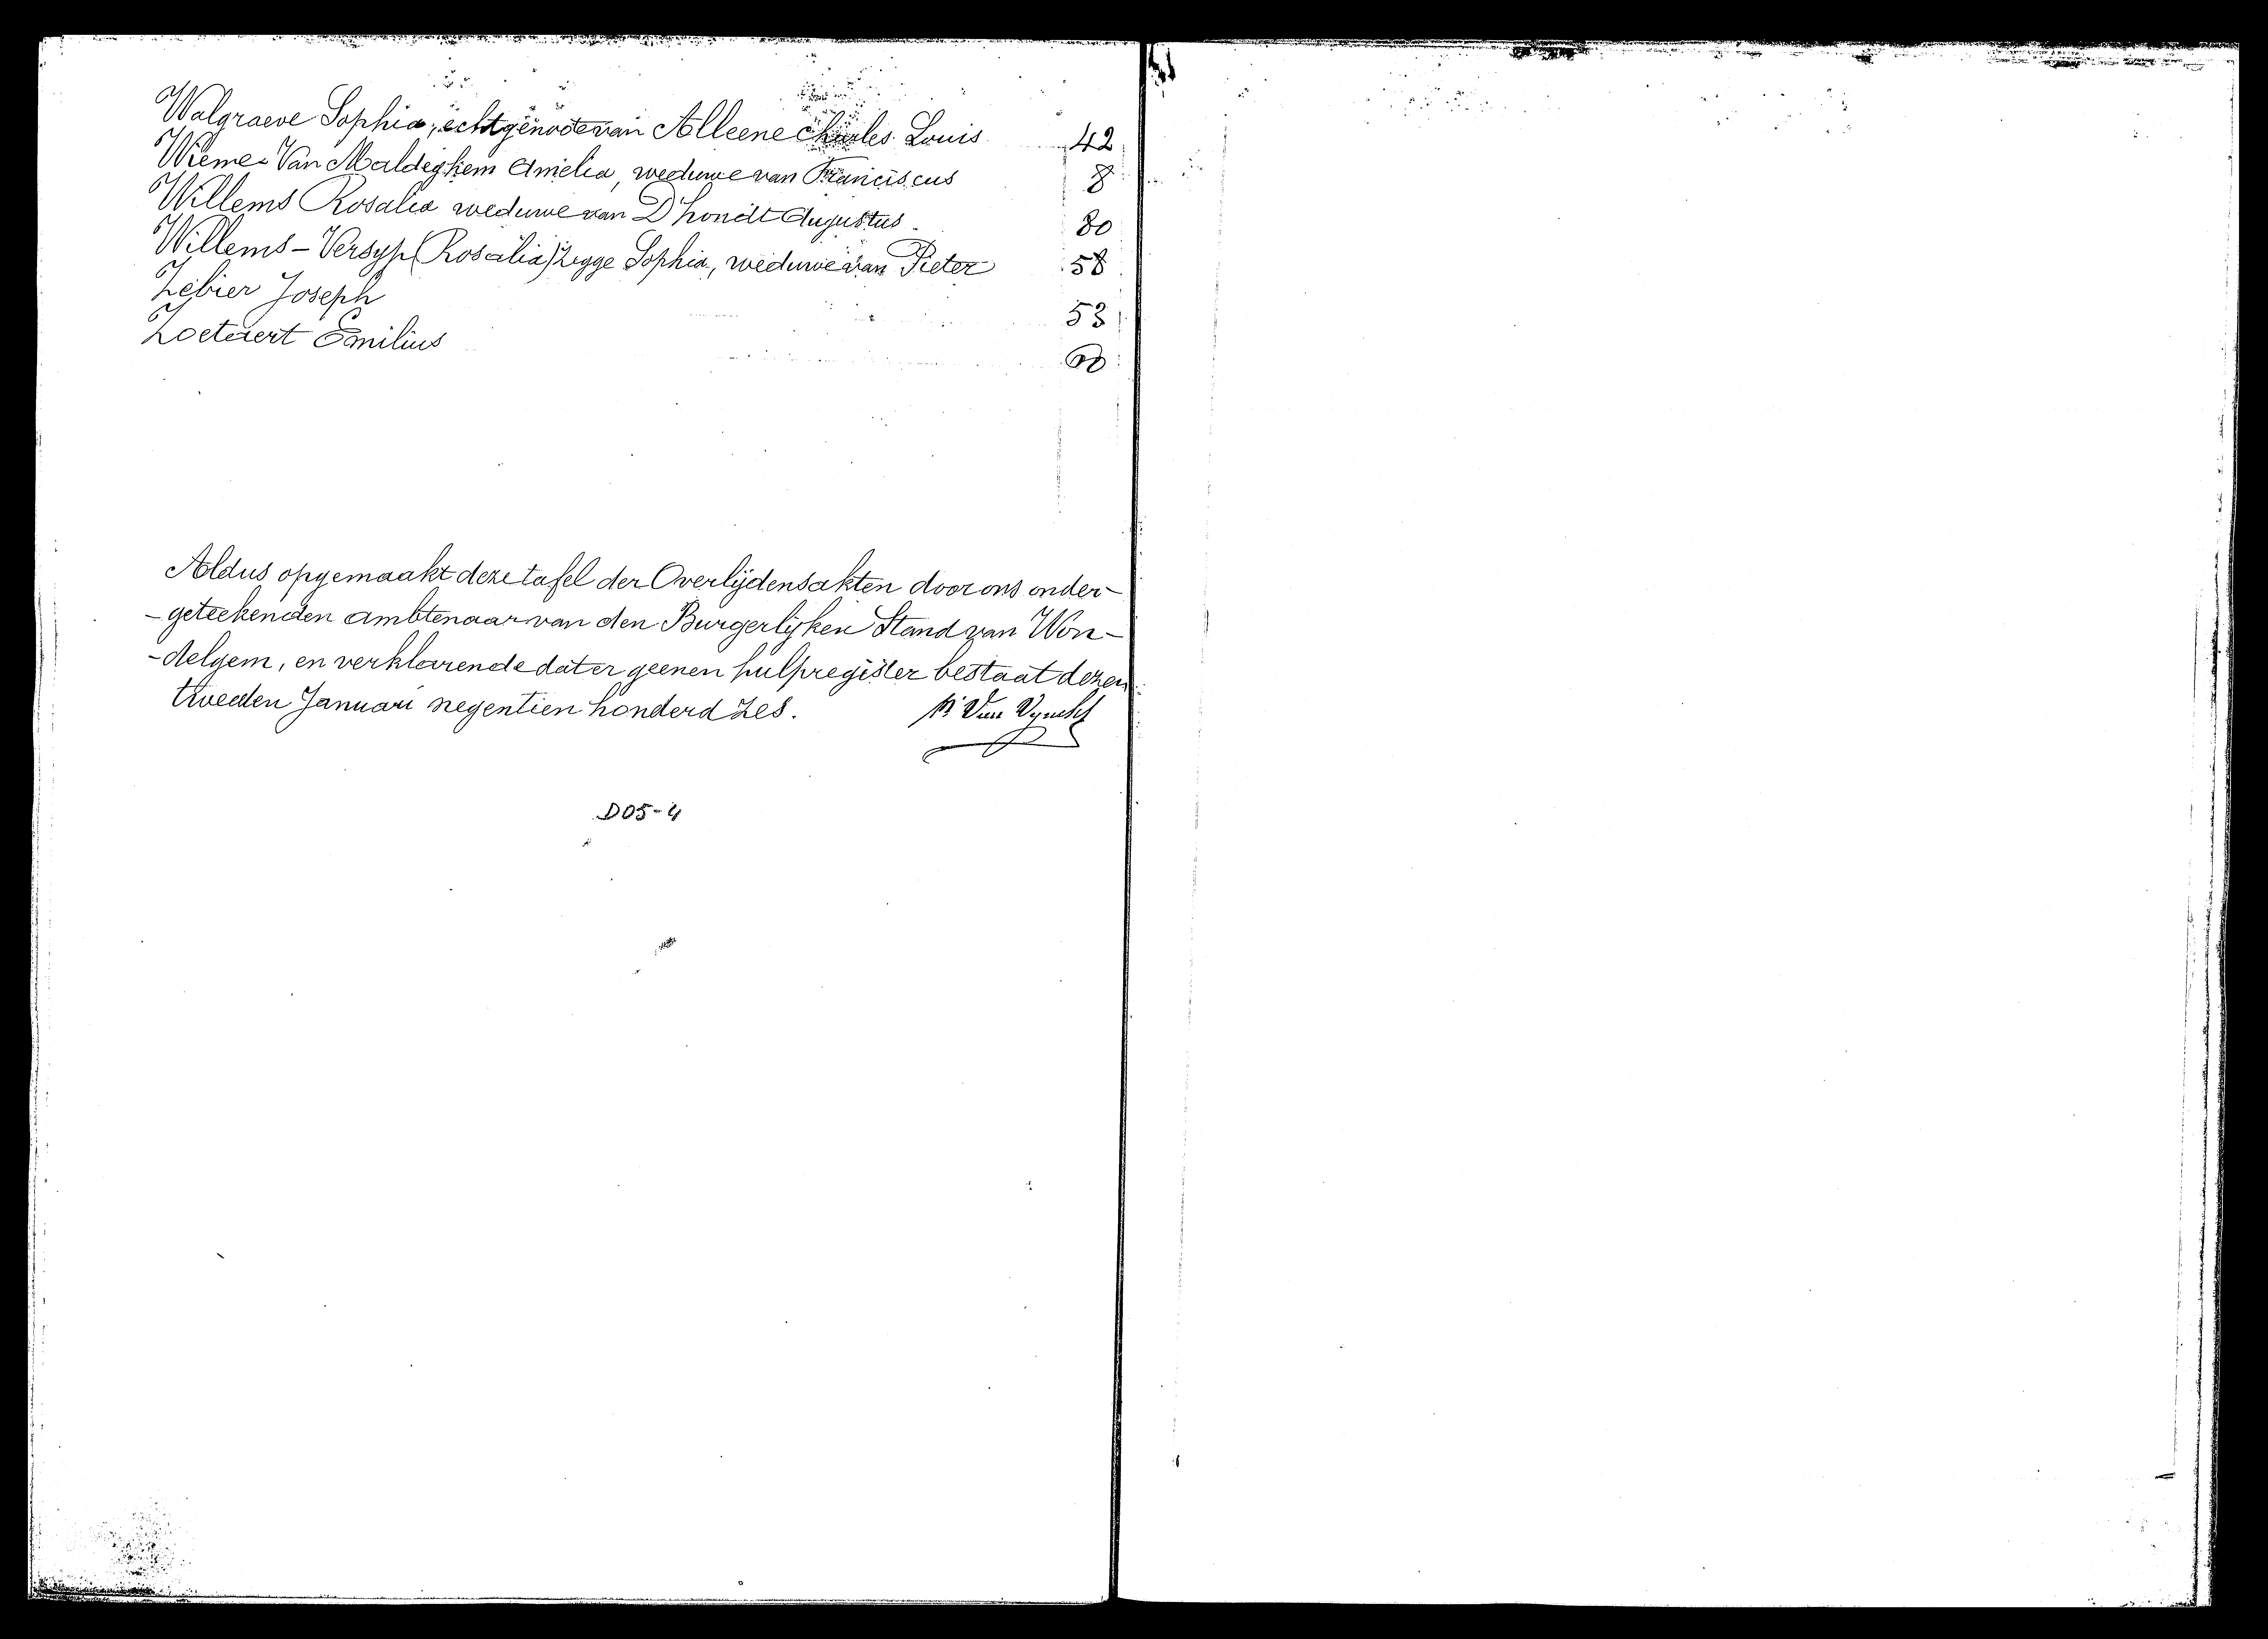 Walgraeve Sophia, echtgenoote van Alleene Charles Louis 42
Wieme - Van Maldeghem Amelia, weduwe van Franciscus 8
Willems Rosalia weduwe van D'hondt Augustus 80
Willems - Versyp (Rosalia) zegge Sophia, weduwe van Pieter 58
Zebier Joseph 53
Zoetaert Emilius
Aldus opgemaakt deze tafel der Overlijdensakten door ons onder-
-geteekenden ambtenaar van den Burgerlijken Stand van Won-
-delgem, en verklarende dat er geenen hulpregister bestaat dezen
tweeden Januari negentien honderd zes.
Van
D05-4